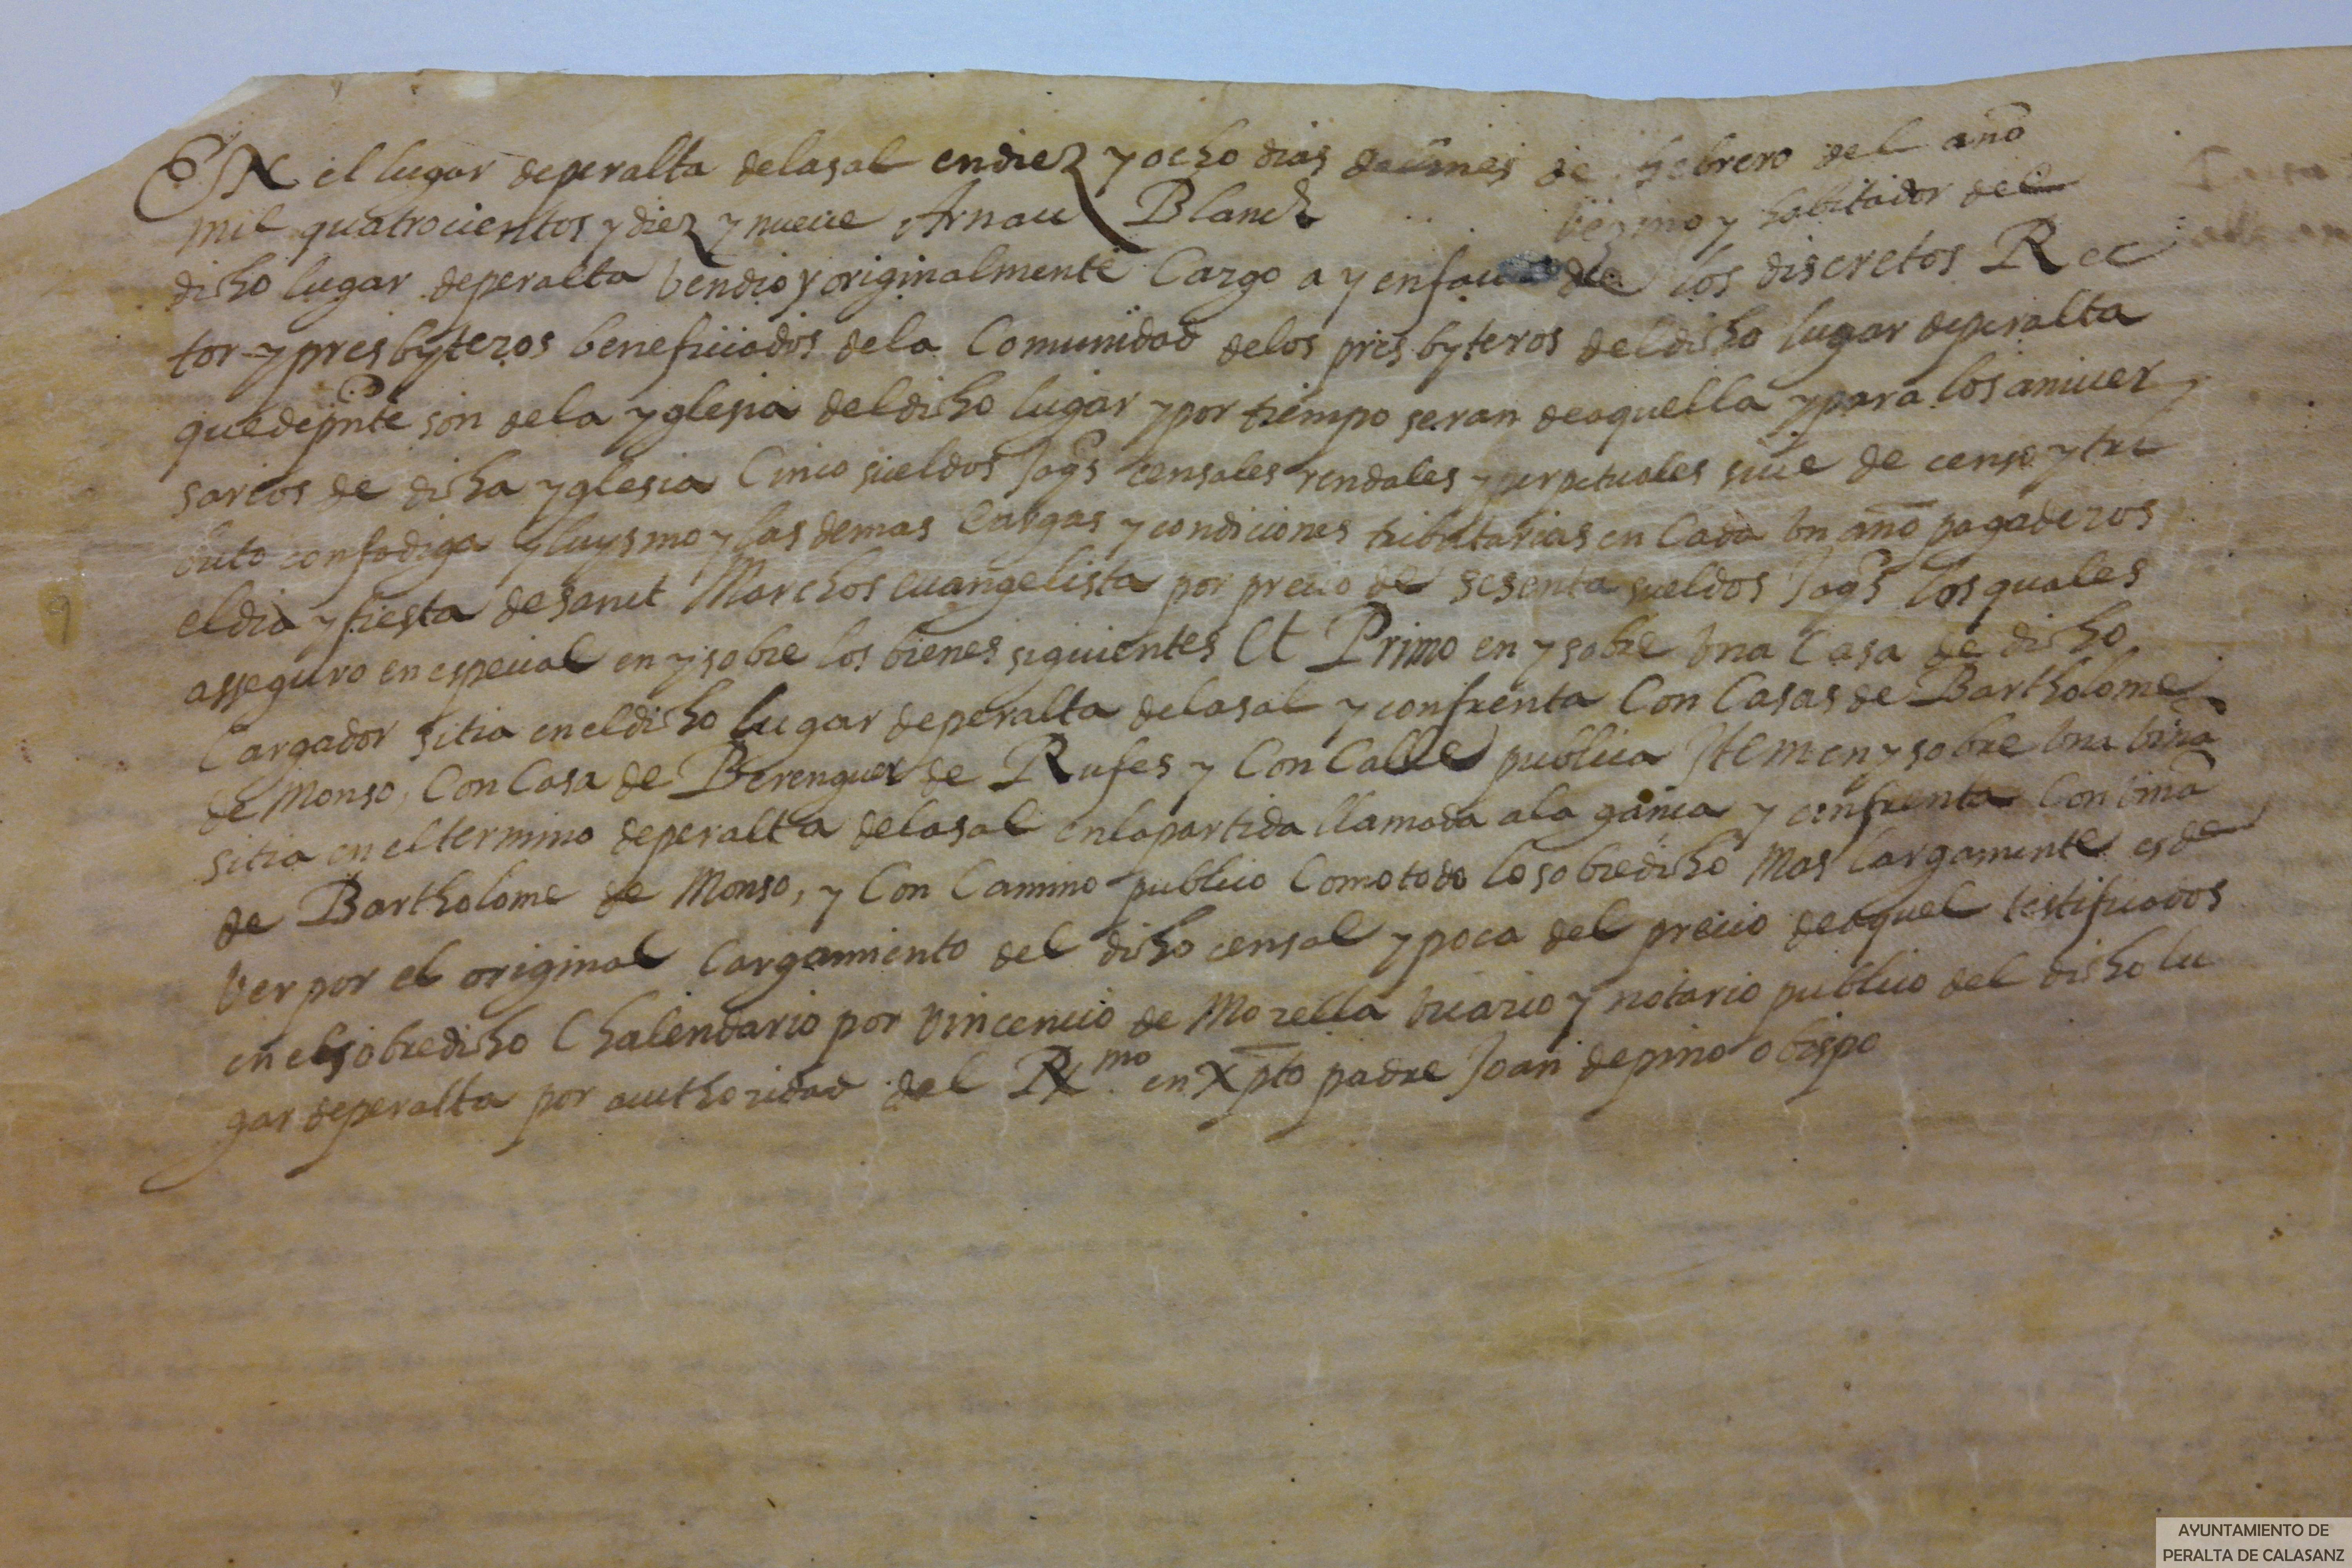 EN el lugar deperalta delasal endiez y ocho dias de mes de hebrero del año
mil quatrocientos y diez y nueue Arnau Blanch vezino y habitador del
dicho lugar deperalta Vendio y originalmente Cargo a y enfau de los discretos Rec
tor y presbyteros beneficiados dela Comunidad delos presbyteros deldicho lugar deperalta
quedepnte son dela yglesia deldicho lugar y por tiempo seran deaquella y para los aniuer
sarios de dicha yglesia Cinco sueldos Jaqs censales rendales y perpetuales siue de censo y tri
buto confadiga y luysmo y las demas cargas y condiciones tributarias en Cada vn año pagaderos
eldia y fiesta desanct Marchos euangelista por precio de sesenta sueldos Jaqs los quales
asseguro en especial en y sobre los bienes siguientes Et Primo en y sobre Vna Casa de dicho
Cargador sitia eneldicho lugar deperalta delasal y confrenta Con Casas de Bartholome
de Monso, Con Casa de Berenguer de Rufes y Con Calle publica Item en y sobre Vna viña
sitia en eltermino deperalta delasal enlapartida llamada ala y confrenta Con viña
de Bartholome de Monso, y Con Camino publico Comotodo losobredicho Mas largamente es de
Ver por el original Cargamiento del dicho censal y poca del precio deaquel testificados
en elsobredicho Chalendario por Vincencio de Morella vicario y notario publico del dicho lu
gar deperalta por authoridad del Rmo en Xpto padre Joan depino obispo
9
AYUNTAMIENTO DE
PERALTA DE CALASANZ